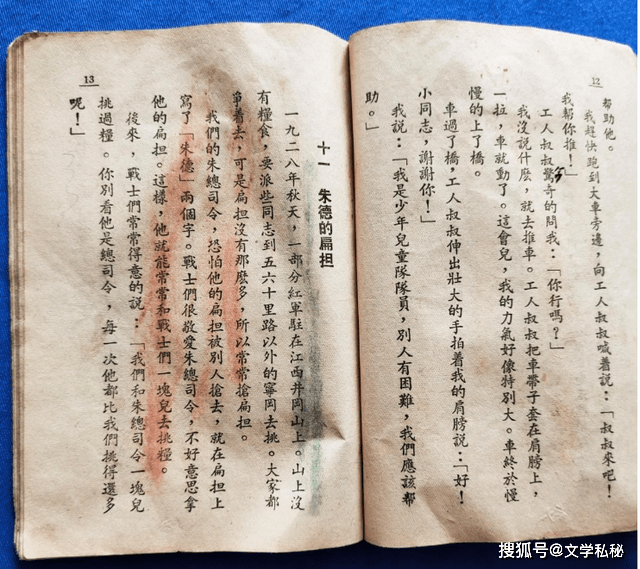 12
幇助他。
我趕快跑到大車旁邊，向工人叔叔喊着說：「叔叔來吧！
我幇你推！」
工人叔叔驚奇的問我：「你行嗎？」
我沒說什麽，就去推車。工人叔叔把車帶子套在肩膀上，
一拉，車就動了。這會兒，我的力氣好像特別大。車終於慢
慢的上了橋。
車過了橋，工人叔叔伸出壯大的手拍着我的肩膀說：「好！
小同志，謝謝你！」
我說：「我是少年兒童隊隊員，別人有困難，我們應該幇
助。」
十一 朱德的扁担
一九二八年秋天，一部分紅軍駐在江西井岡山上。山上沒
有糧食，要派些同志到五六十里路以外的寧岡去挑。大家都
爭着去，可是扁担沒有那麽多，所以常常搶扁担。
我們的朱總司令，恐怕他的扁担被別人搶去，就在扁担上
寫了「朱德」兩個字。戰士們很敬愛朱總司令，不好意思拿
他的扁担。這樣，他就能常常和戰士們一塊兒去挑糧。
後來，戰士們常常得意的說：「我們和朱總司令一塊兒
挑過糧。你別看他是總司令，每一次他都比我們挑得還多
呢！」
13
搜狐号@文学私秘